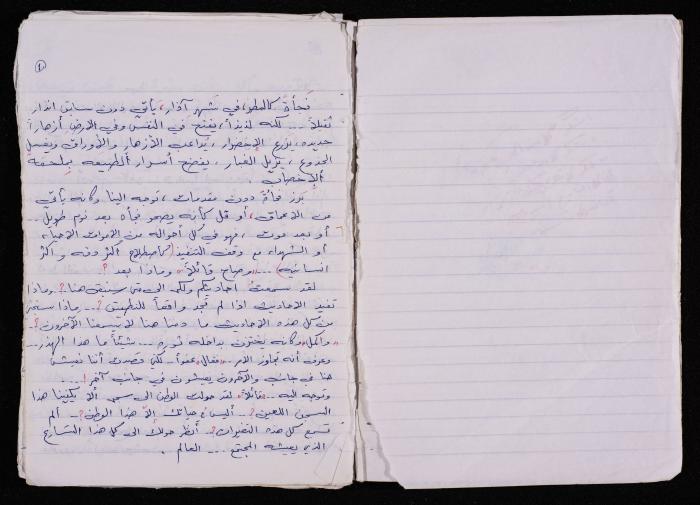 ١
فجأة كالمطر في شهر آذار، يأتي دون سابق انذار
ثقيلاً ... لكنه لذيذاً، يفتح في النفس وفي الارض أزهاراً
جديده، يزرع الإخضرار، يداعب الأزهار والأوراق ويغسل
الجذوع، يزيل الغبار، يفضح أسرار الطبيعه
الإخصاب.
برز فجأة دون مقدمات، توجه الينا وكأنه يأتي
من الاعماق، أو قل كأنه يصحو فجأه بعد نوم طويل..
أو بعد موت، فهو في كل أحواله من الاموات الاحياء
أو الشهداء مع وقف التنفيذ (كاصطلاح أكثر دقه واكثر
انسانيه) ... وصاح قائلاً: وماذا بعد ؟
لقد سمعت احاديثكم ولكن الى متى سنبقى هنا ؟.. وماذا
تفيد الاحاديث اذا لم تجد واقعاً للتطبيق ؟... ماذا
من كل هذه الاحاديث ما دمنا هنا لا يسمعنا الآخرون ؟..
وأكمل وكأنه يختزن بداخله ثوره ... شيئاً ما هذا الهدر...
وعرف أنه تجاوز الأمر... فقال: عفواً.. لكني قصدت أننا نعيش
هنا في جانب والآخرون يعيشون في جانب آخر!....
وتوجه اليه... قائلاً: لقد حولت الوطن الى سجن ألا يكفينا هذا
السجن اللعين ؟.. أليس حياتك إلا هذا الوطن ؟.. ألم
تسمع كل هذه التغيرات ؟.. أنظر حولك الى كل هذا التسارع
الذي يعيشه المجتمع ... العالم.